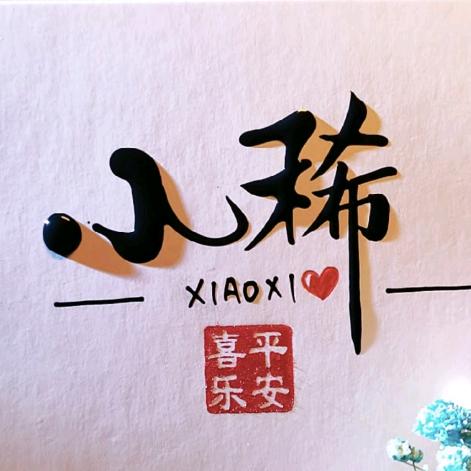 小稀
XIAOXI
平安
喜乐